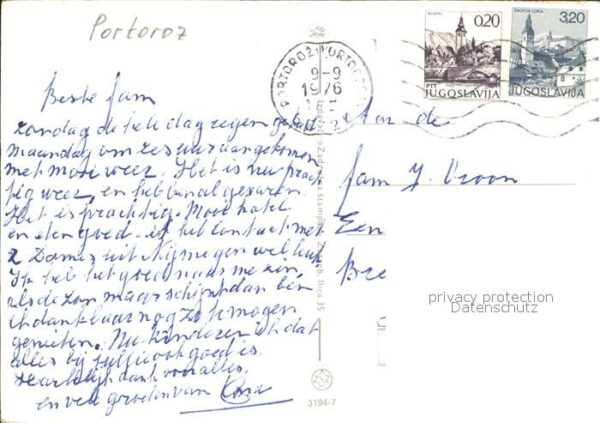 Portoroz
Beste fam
zondag de hele dag regen gehad
maandag om zes uur aangekomen
met mooi weer. Het is nu prach
tig weer, en heb al gevaren
Het is prachtig. Mooi hotel
en eten goed. is het contact met
2 Dames uit Nijmegen wel leuk
Ik heb het goed naar me zin,
als de zon maar schijnt dan ben
ik dankbaar nog zo te mogen
genieten. Nu kinderen ik dat
alles bij jullie ook goed is.
Hartelijk dank voor alles.
en vele groeten van
Aan de
fam J. Vroon
Een
Bre
PORTOROŽ PORTOROSE
9-9
1976
0,20
PTT JUGOSLAVIJA
3,20
JUGOSLAVIJA
Zagreb, Ilica 35
3194-7
privacy protection
Datenschutz